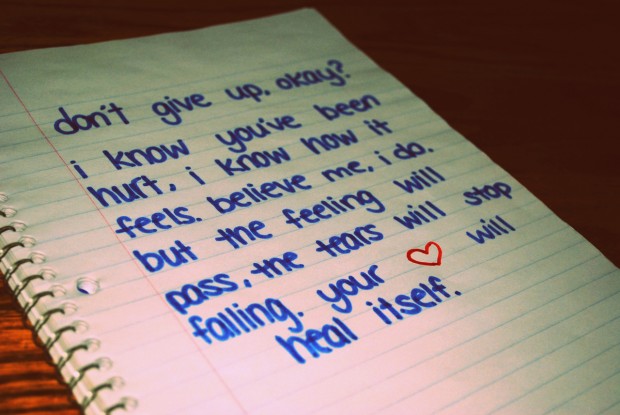 don't give up, okay?
i know you've been
hurt, i know how it
feels. believe me, i do.
but the feeling will
pass, the tears will stop
falling. your ♡ will
heal itself.